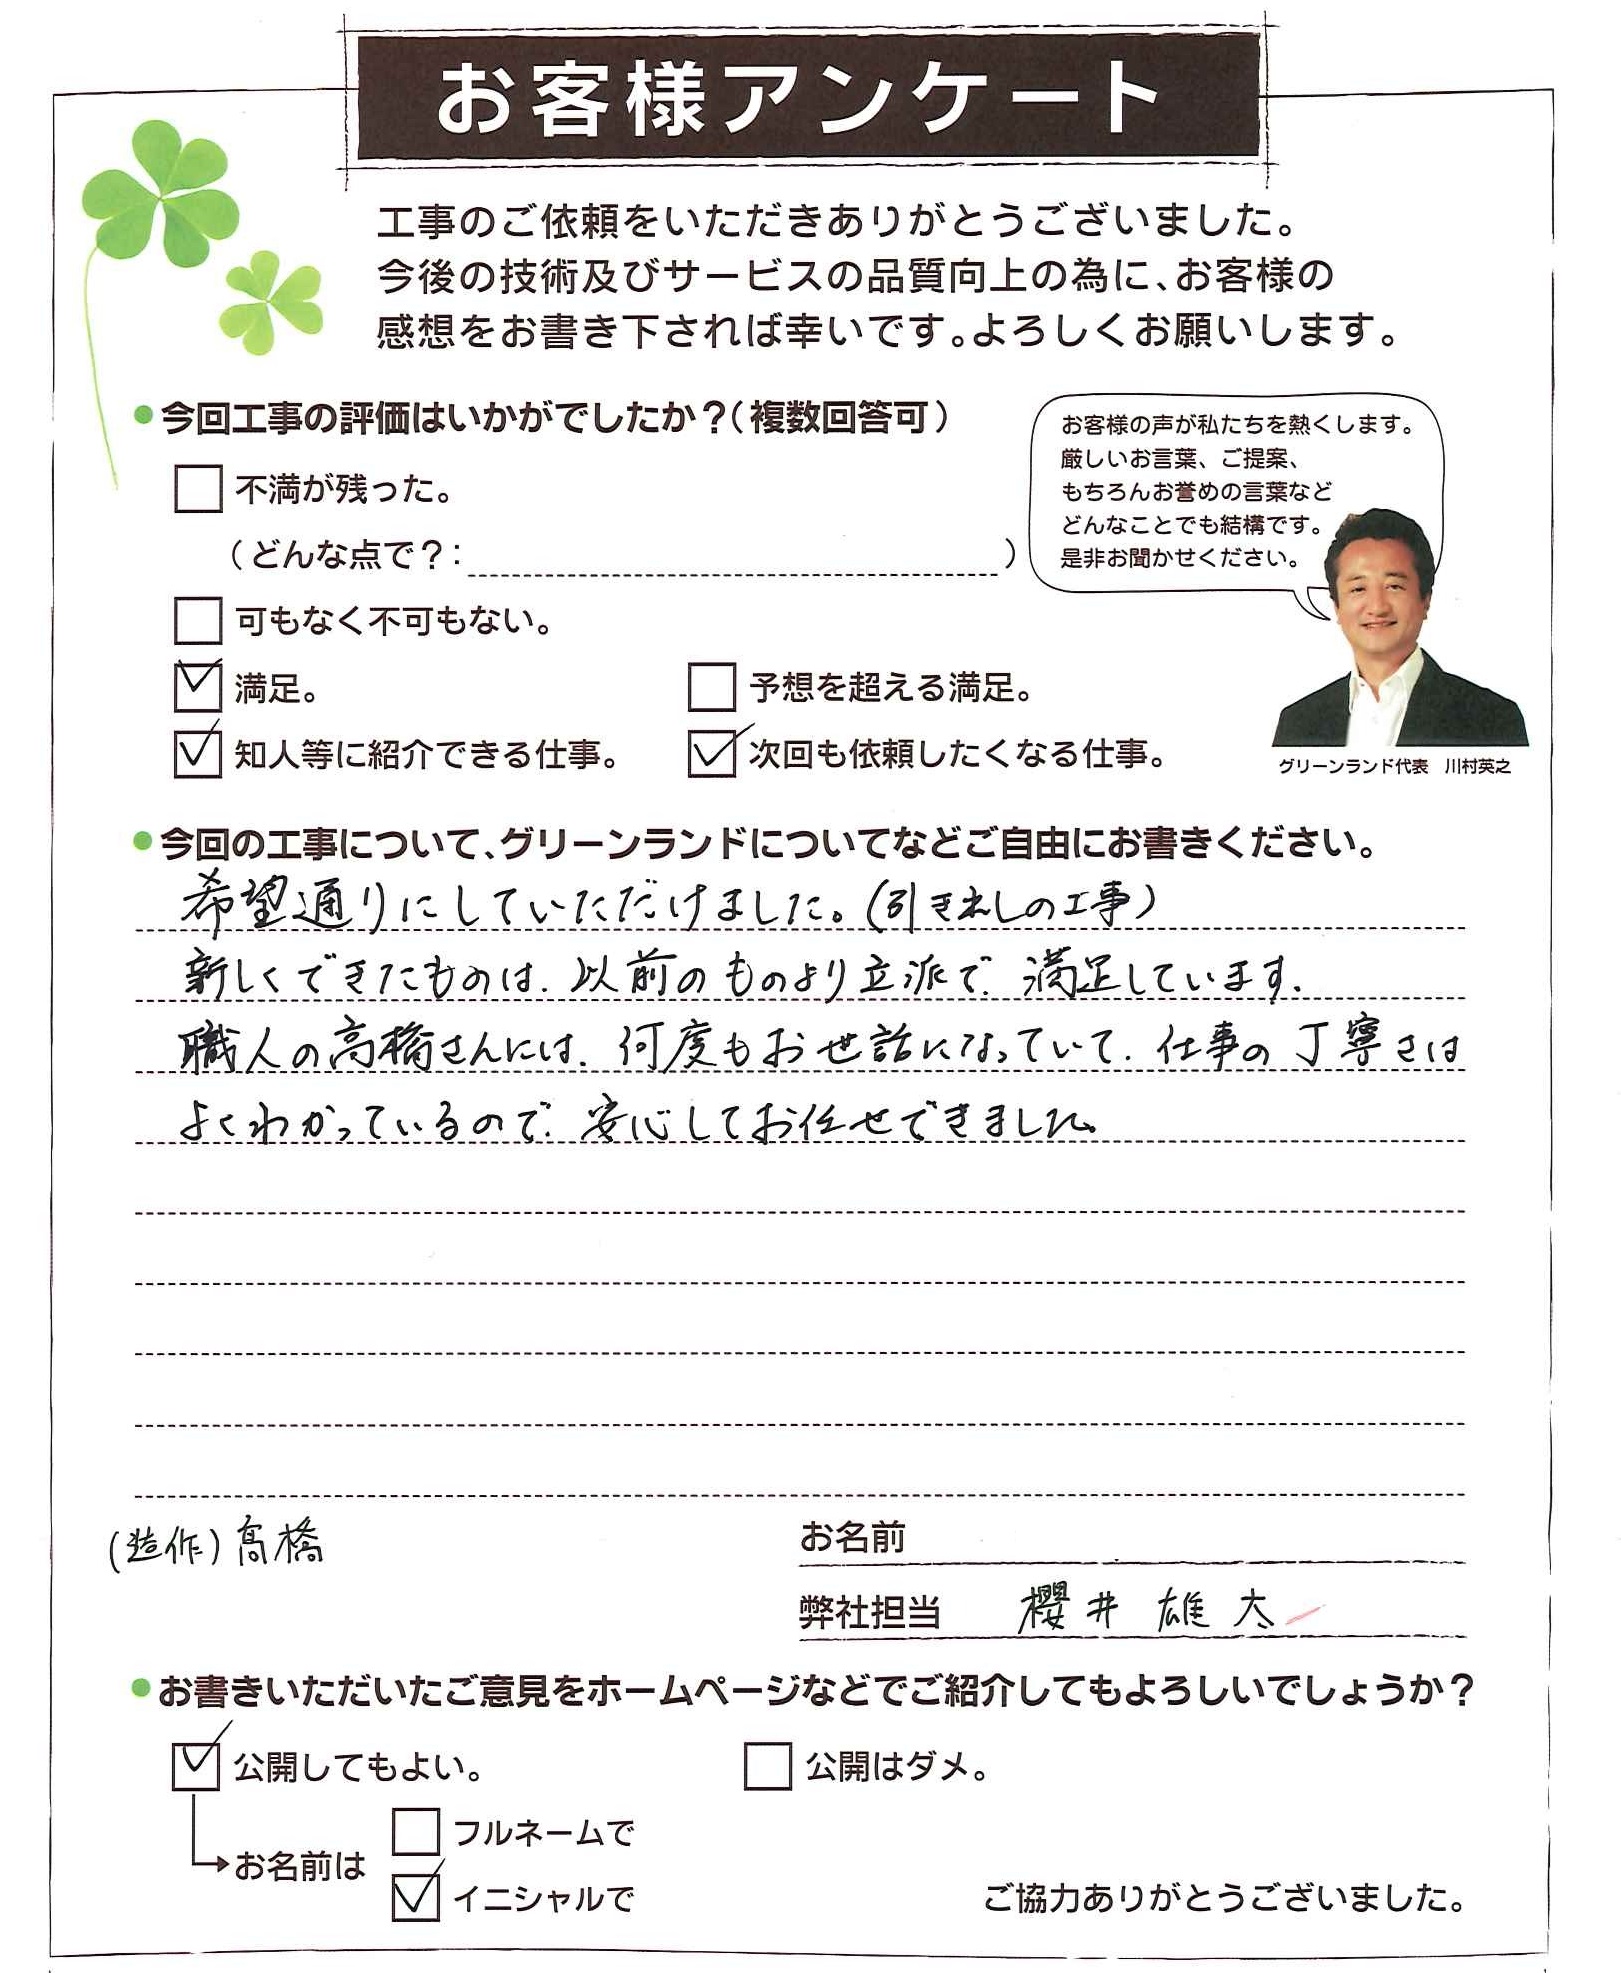 お客様アンケート
工事のご依頼をいただきありがとうございました。
今後の技術及びサービスの品質向上の為に、お客様の
感想をお書き下されば幸いです。よろしくお願いします。
●今回工事の評価はいかがでしたか?(複数回答可)
お客様の声が私たちを熱くします。
厳しいお言葉、ご提案、
もちろんお誉めの言葉など
どんなことでも結構です。
是非お聞かせください。
不満が残った。
(どんな点で?: )
可もなく不可もない。
満足。
予想を超える満足。
知人等に紹介できる仕事。
次回も依頼したくなる仕事。
グリーンランド代表 川村英之
●今回の工事について、グリーンランドについてなどご自由にお書きください。
希望通りにしていただけました。(引き出しの工事)
新しくできたものは、以前のものより立派で、満足しています。
職人の高橋さんには、何度もお世話になっていて、仕事の丁寧さは
よくわかっているので、安心してお任せできました。
(造作)髙橋
お名前
弊社担当 櫻井 雄太
●お書きいただいたご意見をホームページなどでご紹介してもよろしいでしょうか?
公開してもよい。
公開はダメ。
お名前は
フルネームで
イニシャルで
ご協力ありがとうございました。